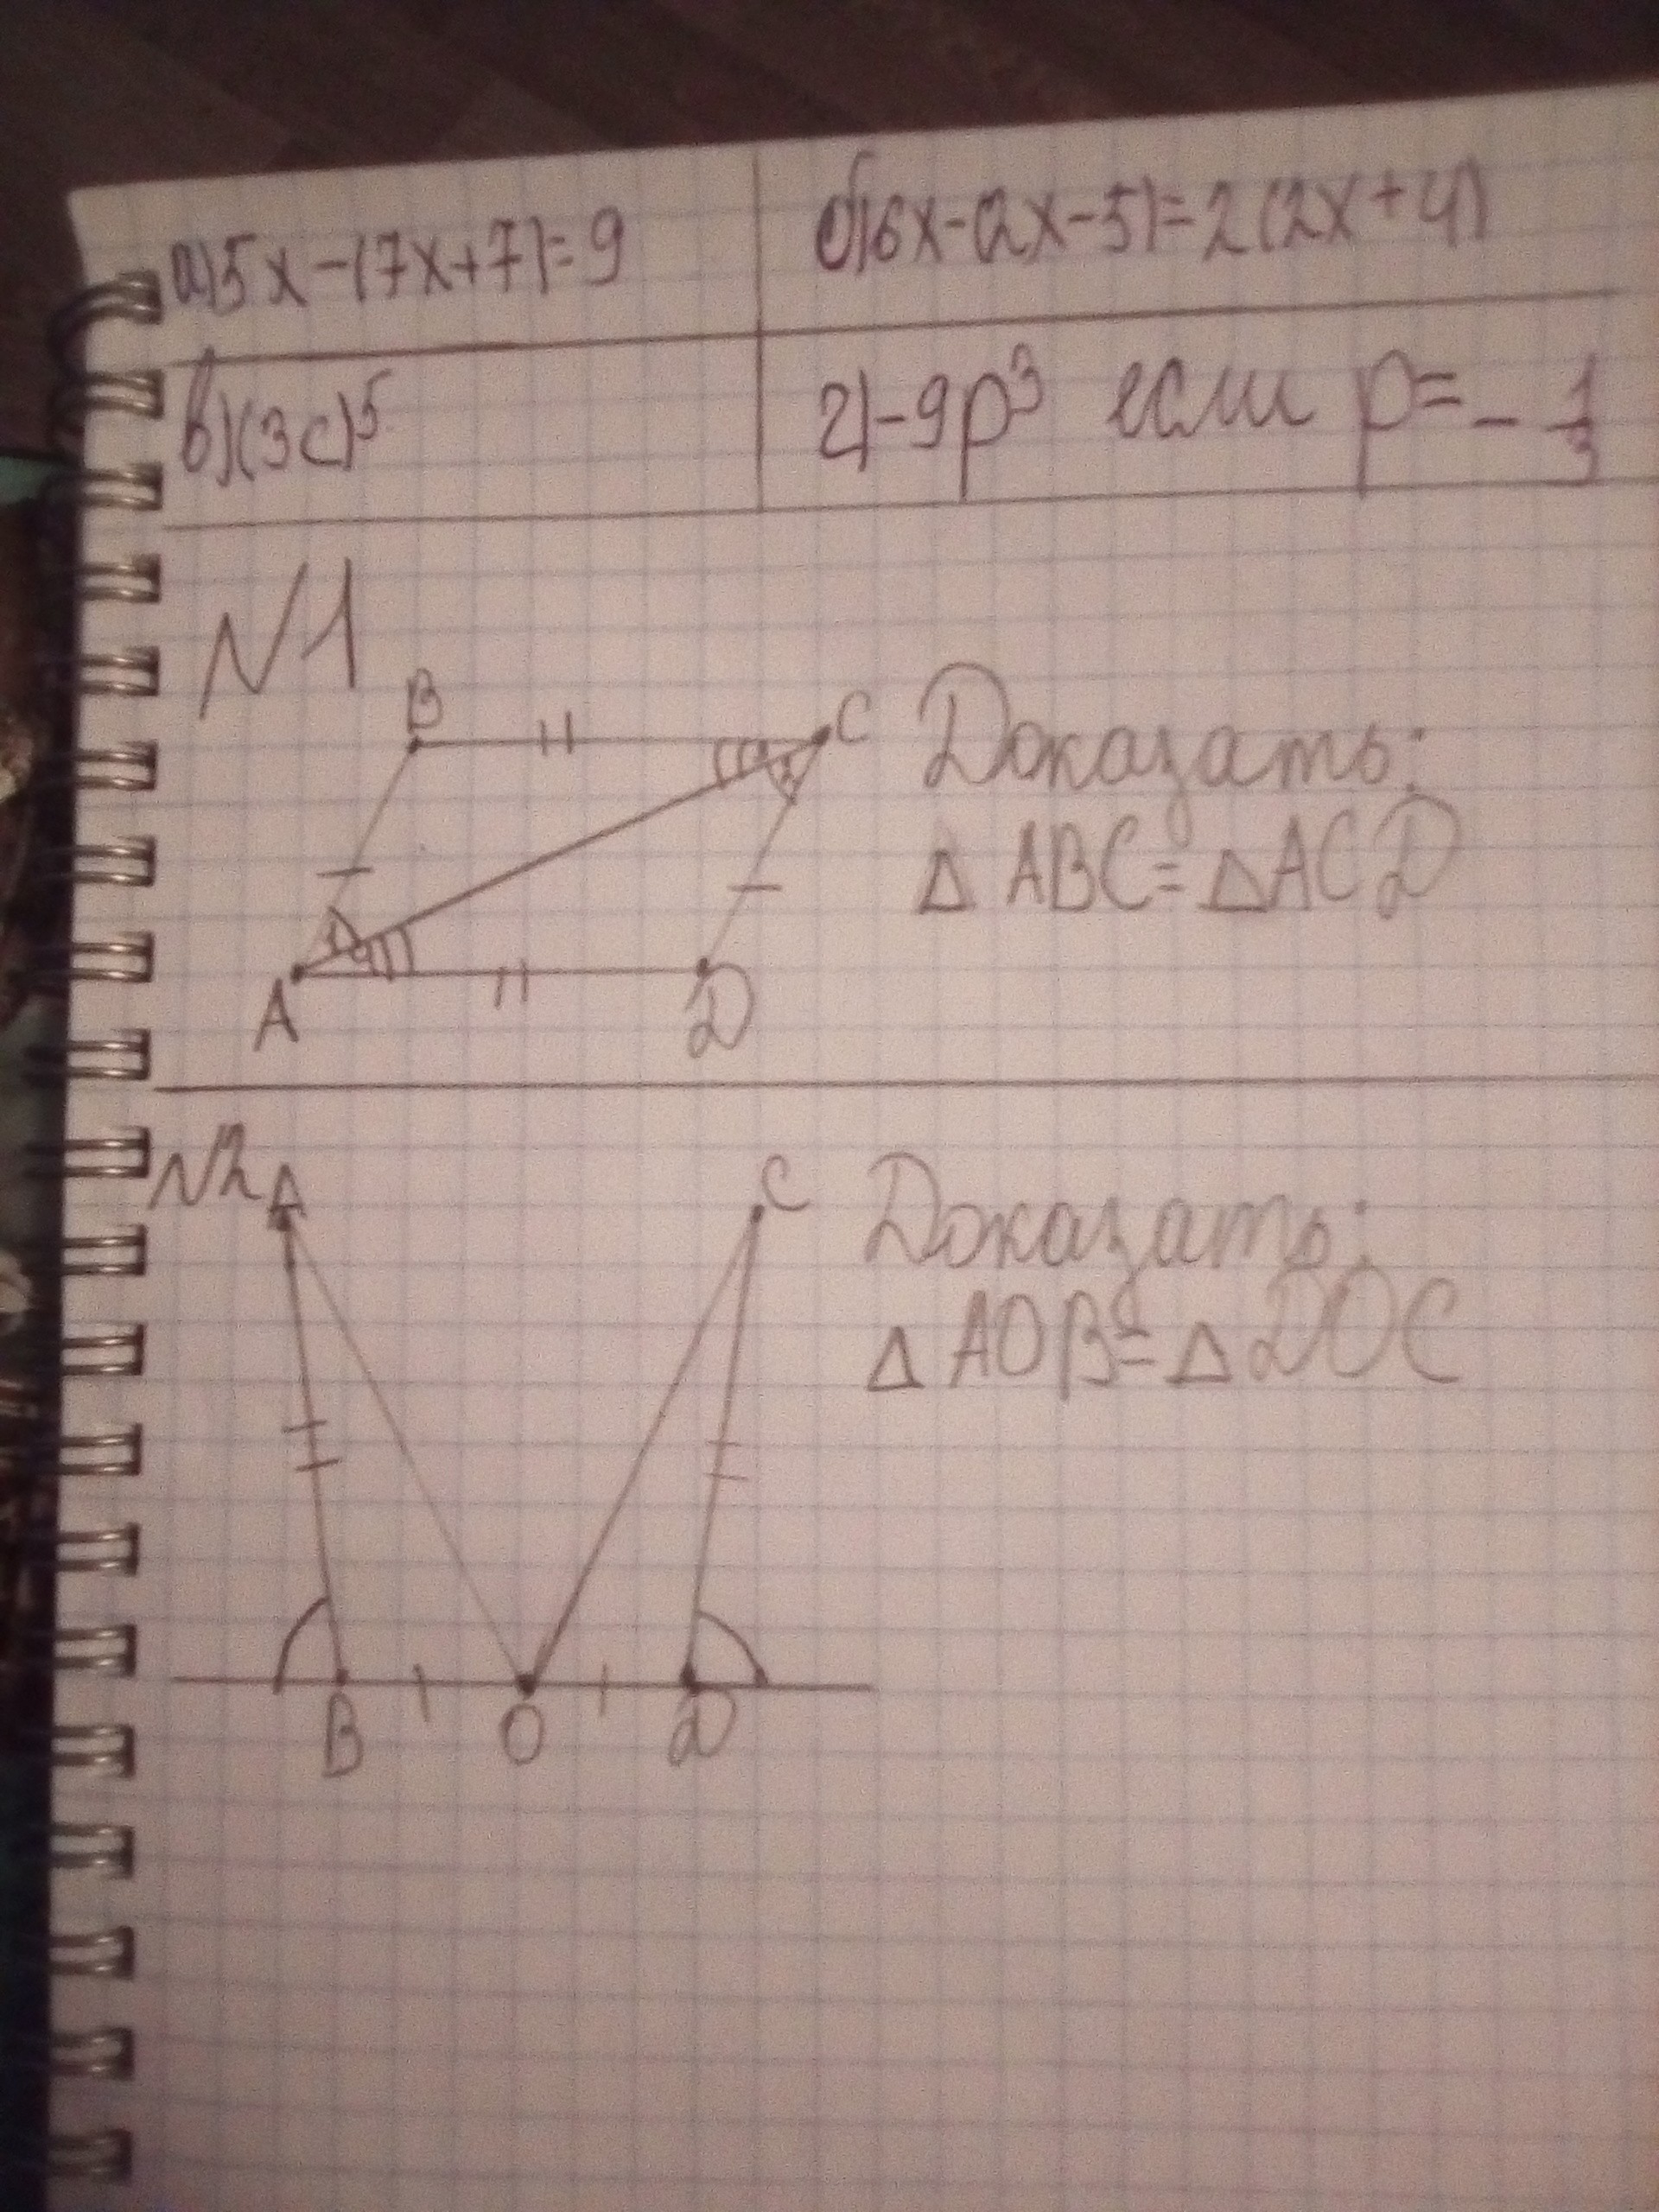 а) 5x-(7x+7)=9
б) 6x-(2x-5)=2(2x+4)
в) (3c)⁵
г) -9p³ если p=-1/3
N1
B
C
Доказать:
△ ABC=△ACD
A
D
N2
A
C
Доказать:
△ AOB=△DOC
B
O
D